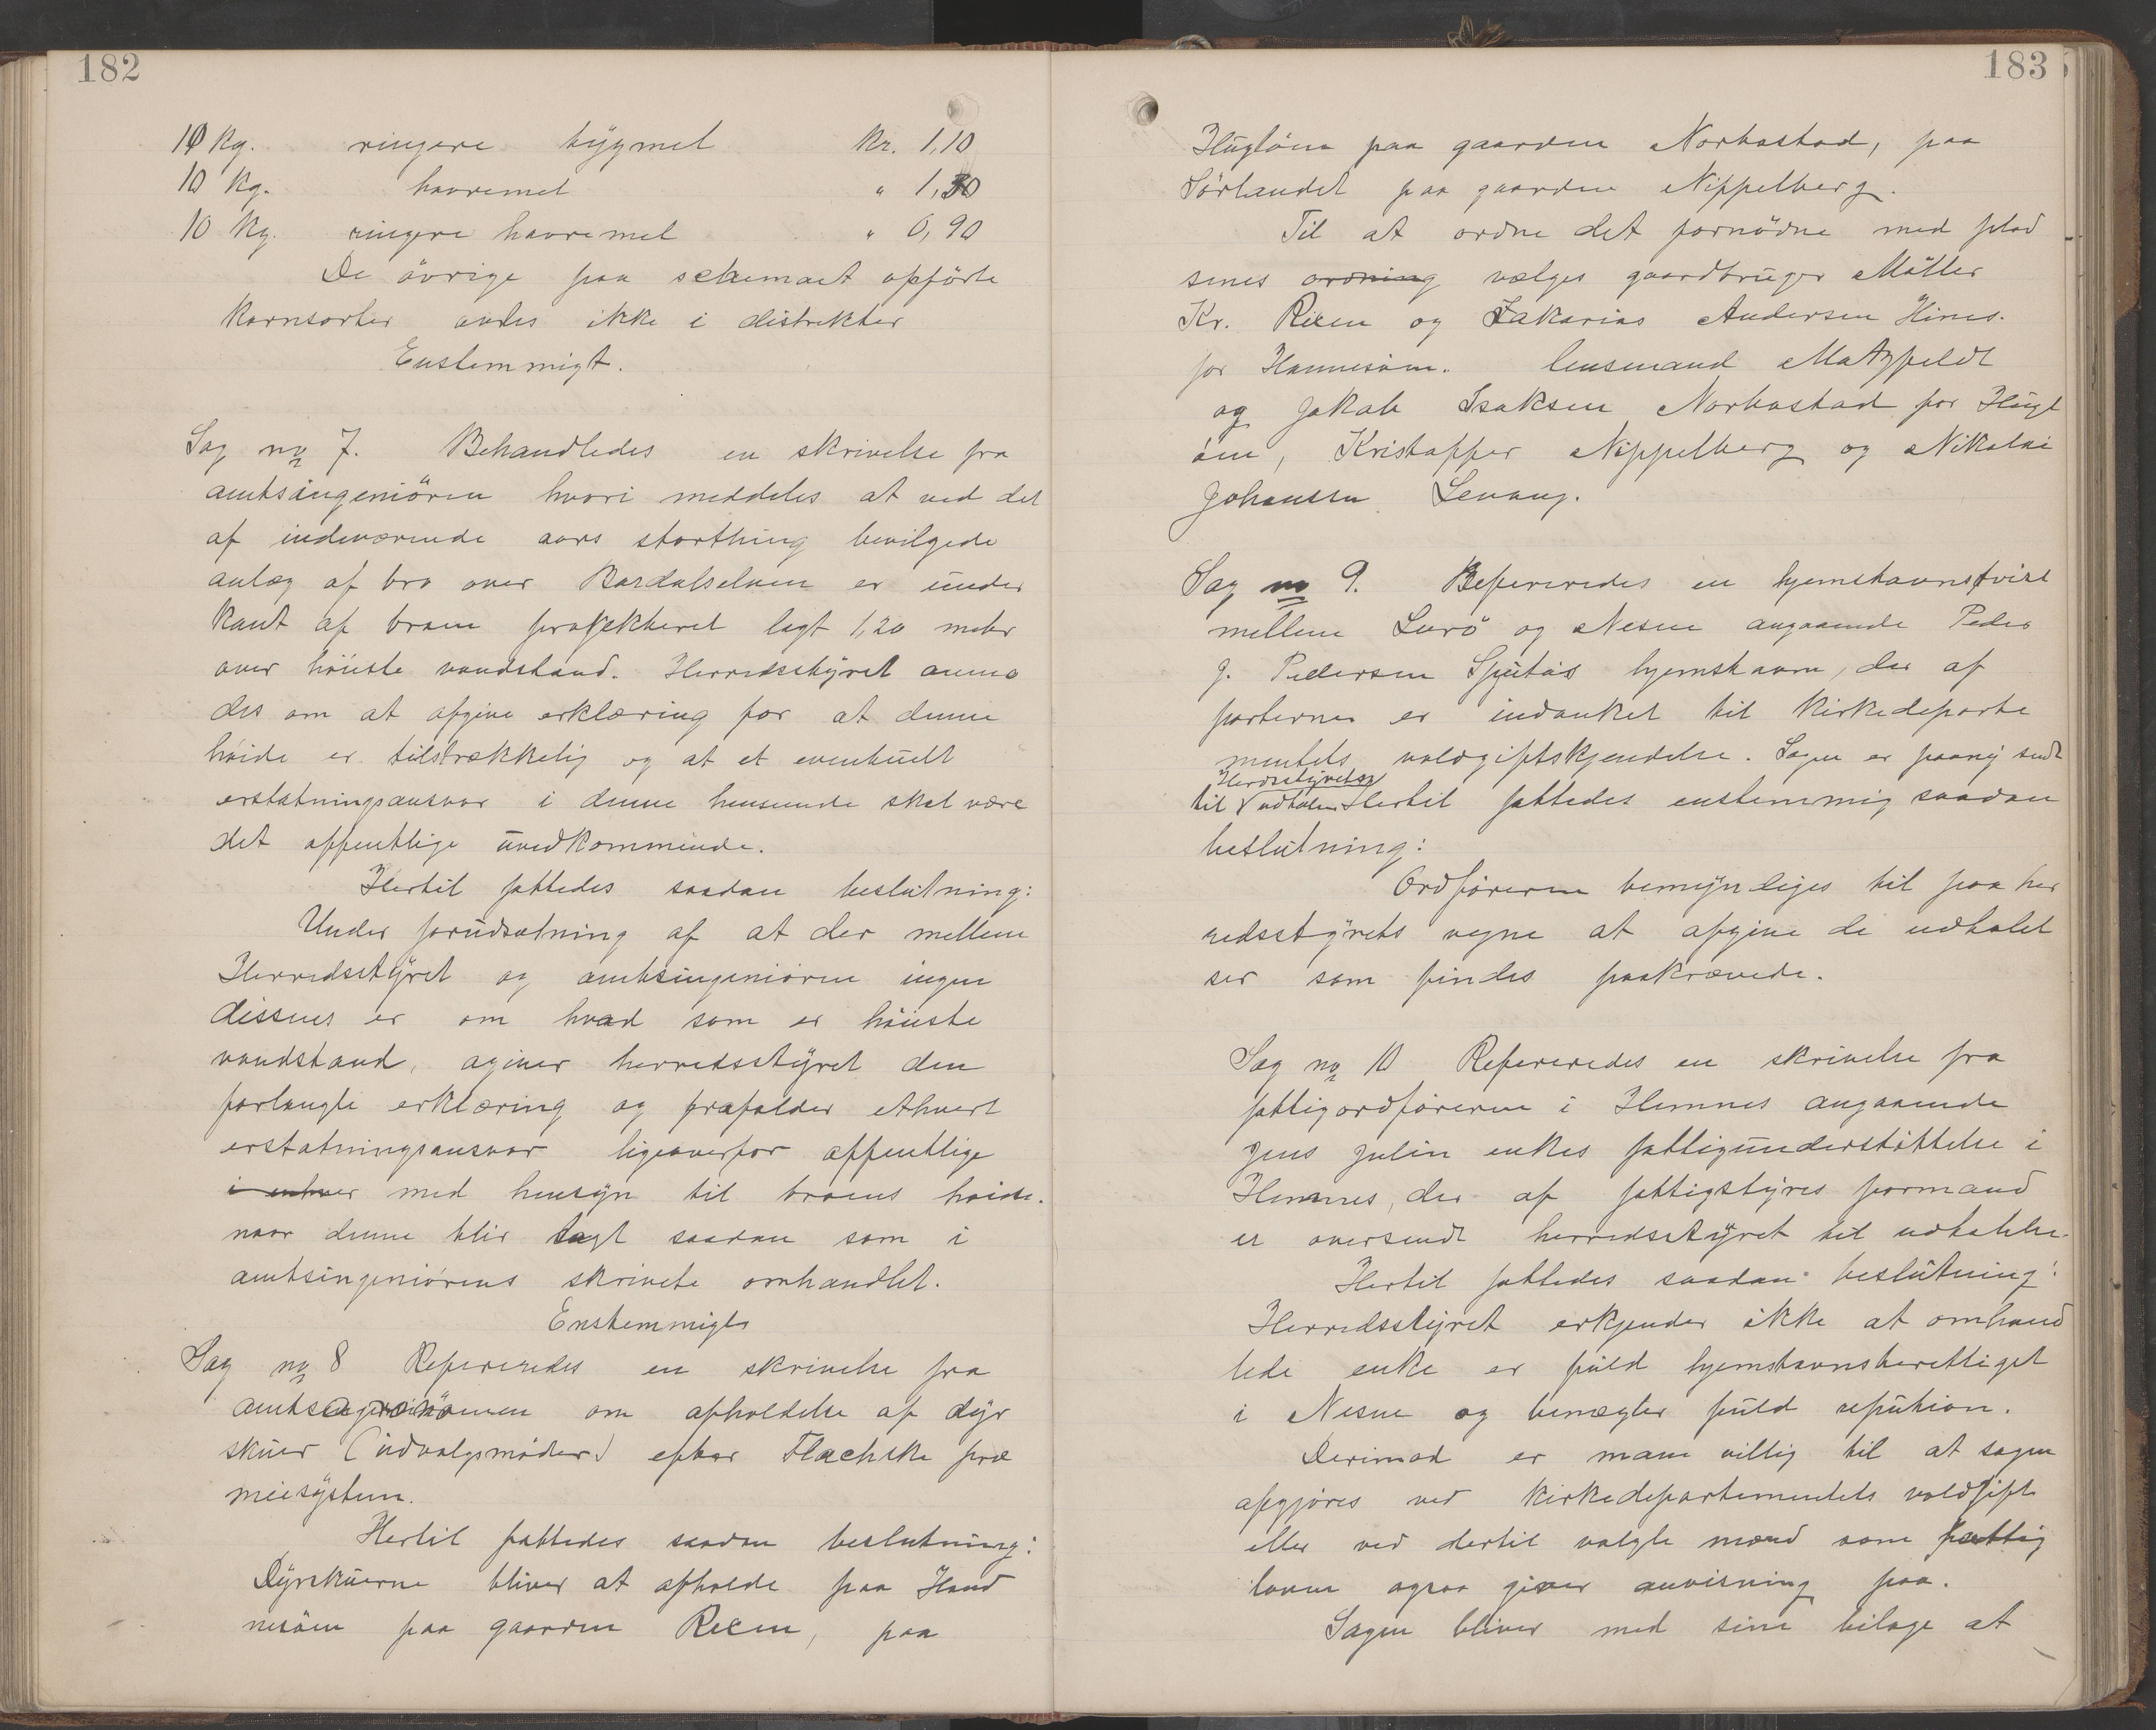 182
10 kg. ringere bygmel kr. 1,10
10 kg. havremel " 1,30
10 kg. ringere havremel " 0,90
De övrige paa schemaet opförte
kornsorter avles ikke i distrikter
Enstemmigt.
Sag no 7. Behandledes en skrivelse fra
amtsingeniören hvori meddeles at ved det
af indeværende aars storthing bevilgede
anlæg af bro over Bardalselven er under
kant af broen projekteret lagt 1,20 meter
over höieste vandstand. Herredsstyret anmo
des om at afgive erklæring for at denne
höide er tilstrækkelig og at et eventuelt
erstatningsansvar i denne henseende skal være
det offentlige uvedkommende.
Hertil fattedes saadan beslutning:
Under forudsætning af at der mellem
Herredsstyret og amtsingeniören ingen
dissens er om hvad som er höieste
vandstand, agiver herredsstyret den
forlangte erklæring og frafalder ethvert
erstatningsansvar ligeoverfor offentlige
i enhver med hensyn til broens höide.
naar denne blir lagt saadan som i
amtsingeniörens skrivele omhandlet.
Enstemmigt
Sag no 8 Refereredes en skrivelse fra
amtsagronomen om afholdelse af dyr
skuer (udvalgsmöder) efter Flachske præ
meisystem.
Hertil fattedes saadan beslutning:
Dyrskuerne bliver at afholde paa Hand
nesöen paa gaarden Reien, paa
183
Huglöen paa gaarden Norbostad, paa
Sörlandet paa gaarden Nippelberg.
Til at ordne det fornödne med plad
senes ordning vælges gaardbruger Möller
Kr. Reien og Zakarias Andersen Hines.
for Hannesöen. lensmand Matzfeldt
og Jakob Isaksen Norbostad for Hugl
öen, Kristoffer Nippelberg og Nikolai
Johansen Levang.
Sag no 9. Refereredes en hjemstavnstvist
mellem Lurö og Nesne angaaende Peder
J. Pedersen Sjutøs hjemstavn, der af
parterne er indanket til Kirkedeparte
mentets voldgiftskjendelse. Sagen er paany sendt
Herredsstyrets
til udtalen Hertil fattedes enstemmig saadan
beslutning:
Ordföreren bemyndiges til paa her
redsstyrets vegne at afgive de udtalel
ser som findes paakrævede.
Sag no 10 Refereredes en skrivelse fra
fattigordföreren i Hemnes angaaende
Jens Julin enkes fattigunderstöttelse i
Hemnes, der af fattigstyres formand
er oversendt herredsstyret til udtalelse.
Hertil fattedes saadan beslutning:
Herredsstyret erkjender ikke at omhand
lede enke er fuld hjemstavnsberettiget
i Nesne og benegter fuld refution.
Derimod er man villig til at sagen
afgjöres ved kirkedepartementets voldgift
eller ved dertil valgte mænd som fattig
loven ogsaa giver anvisning paa.
Sagen bliver med sine bilage at